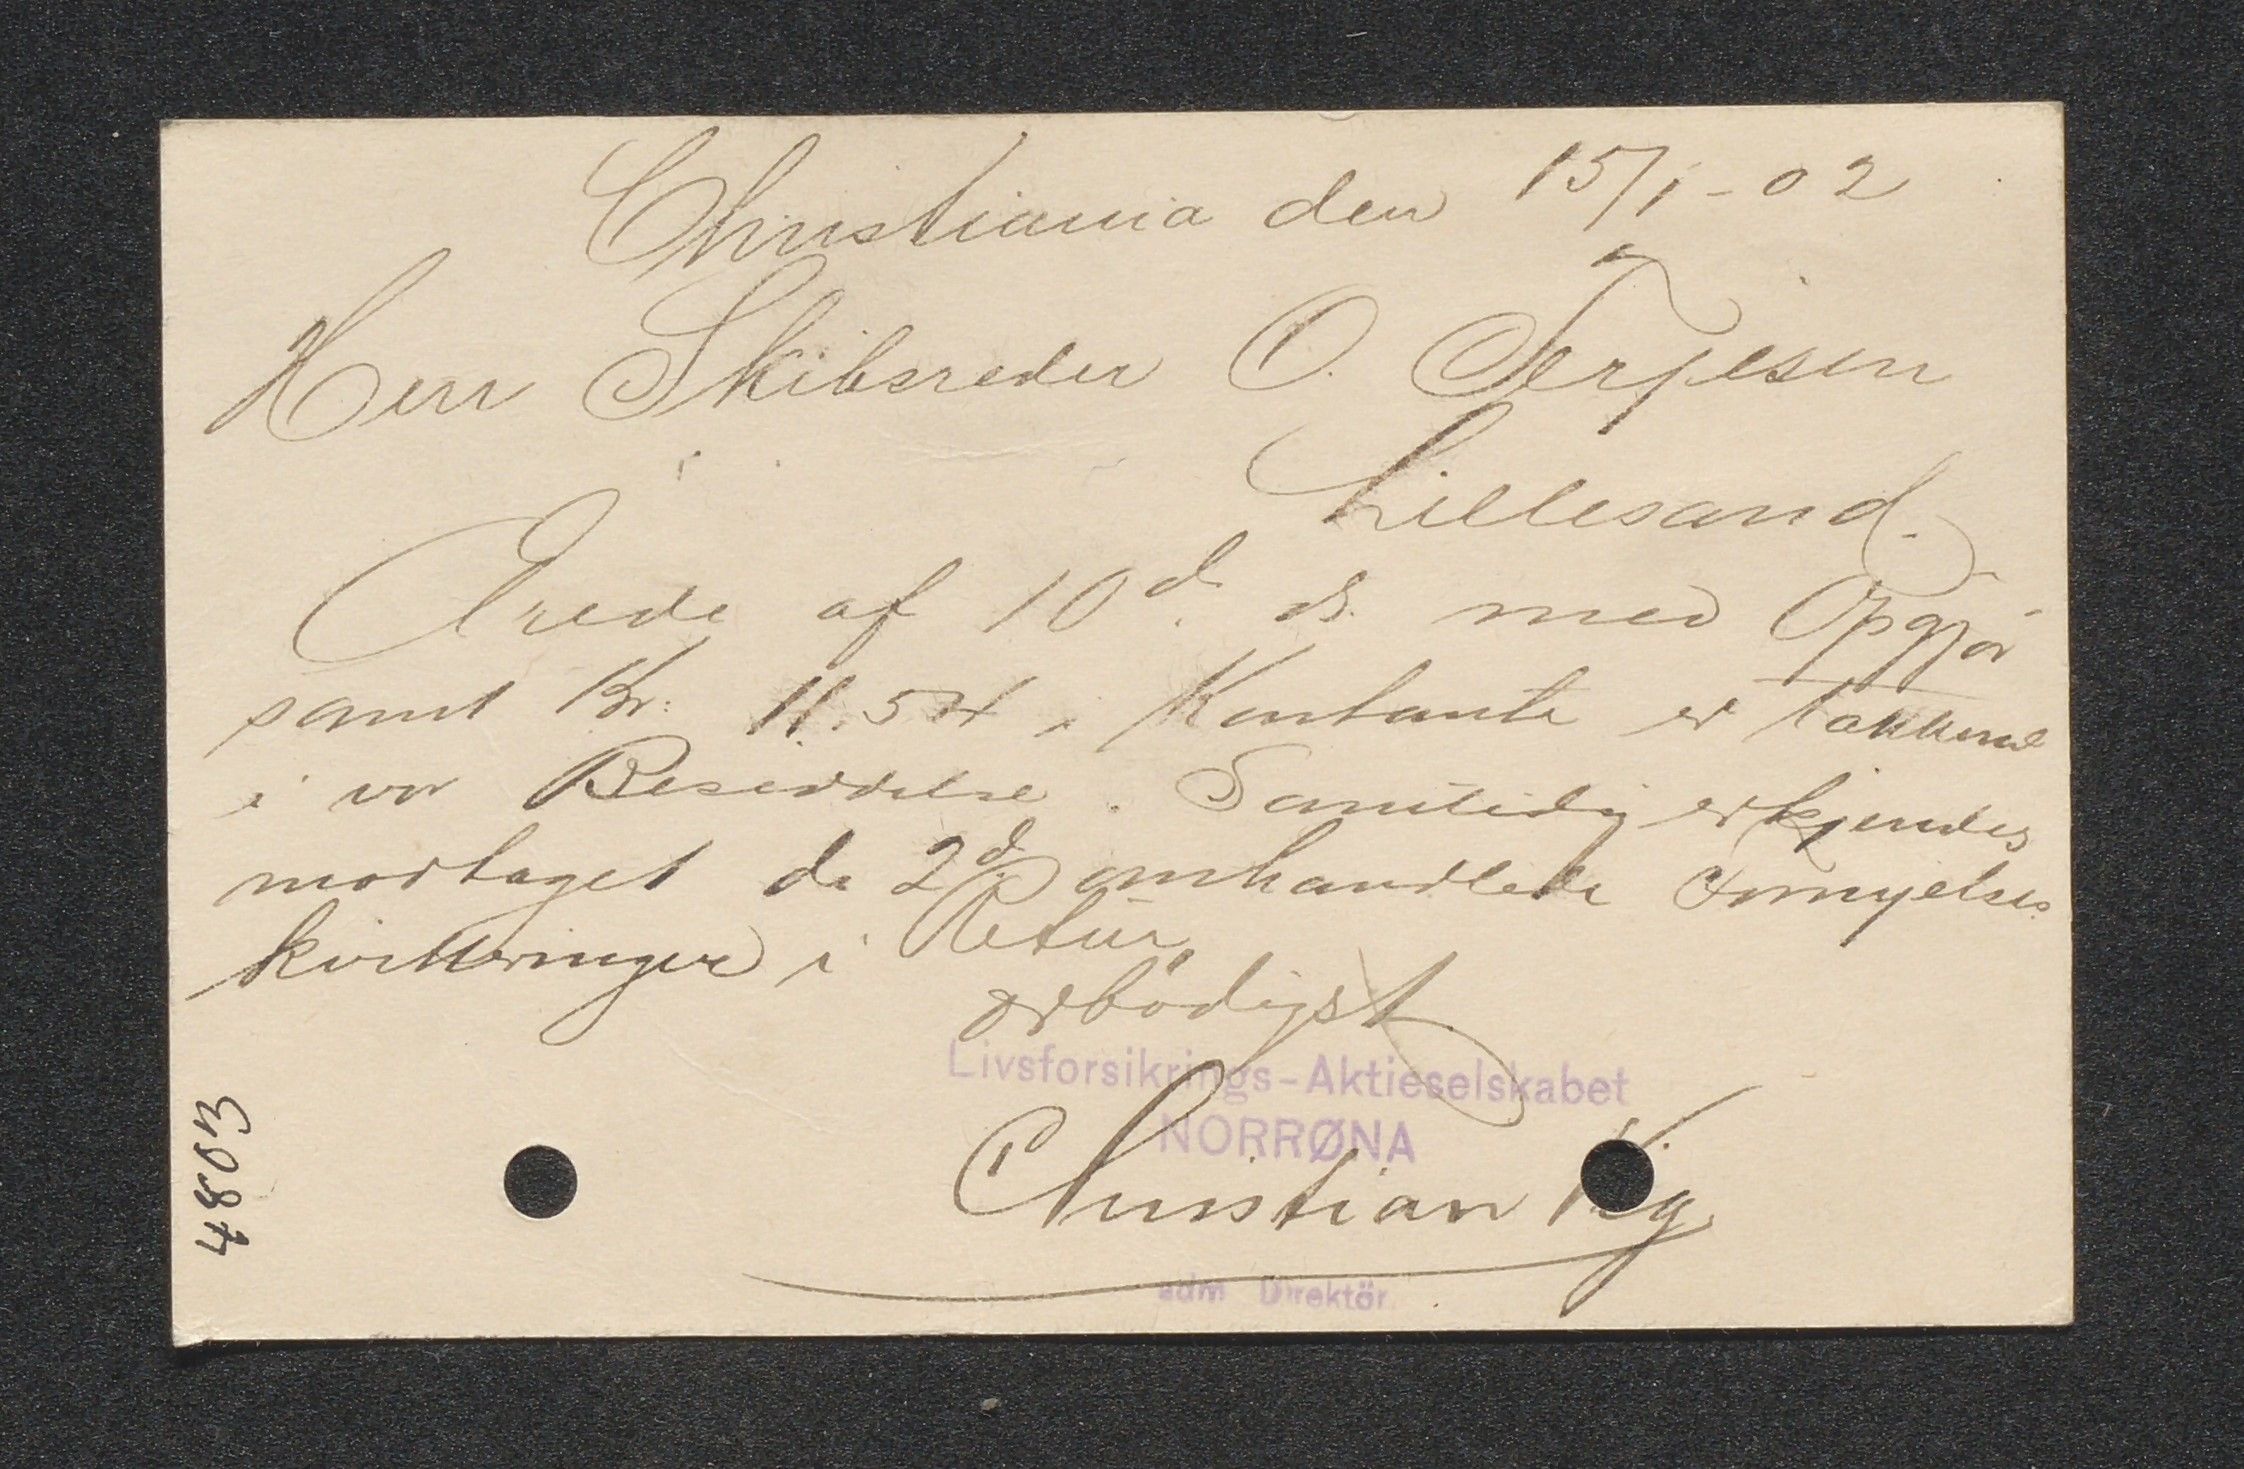 Christiania den 15/1-02
Herr Skibsreder O. Terjesen
Lillesand.
Ærede af 10d. ds. med Opgjør
samt Kr: 11.54 i Kontante er takkende
i vor Besiddelse. Samtidig erkjendes
modtaget de 2d. omhandlede Fornyelses
kvitteringer i Retur
ærbödigst
Livsforsikrings-Aktieselskabet
NORRØNA
Christian
adm Direktör.
4803